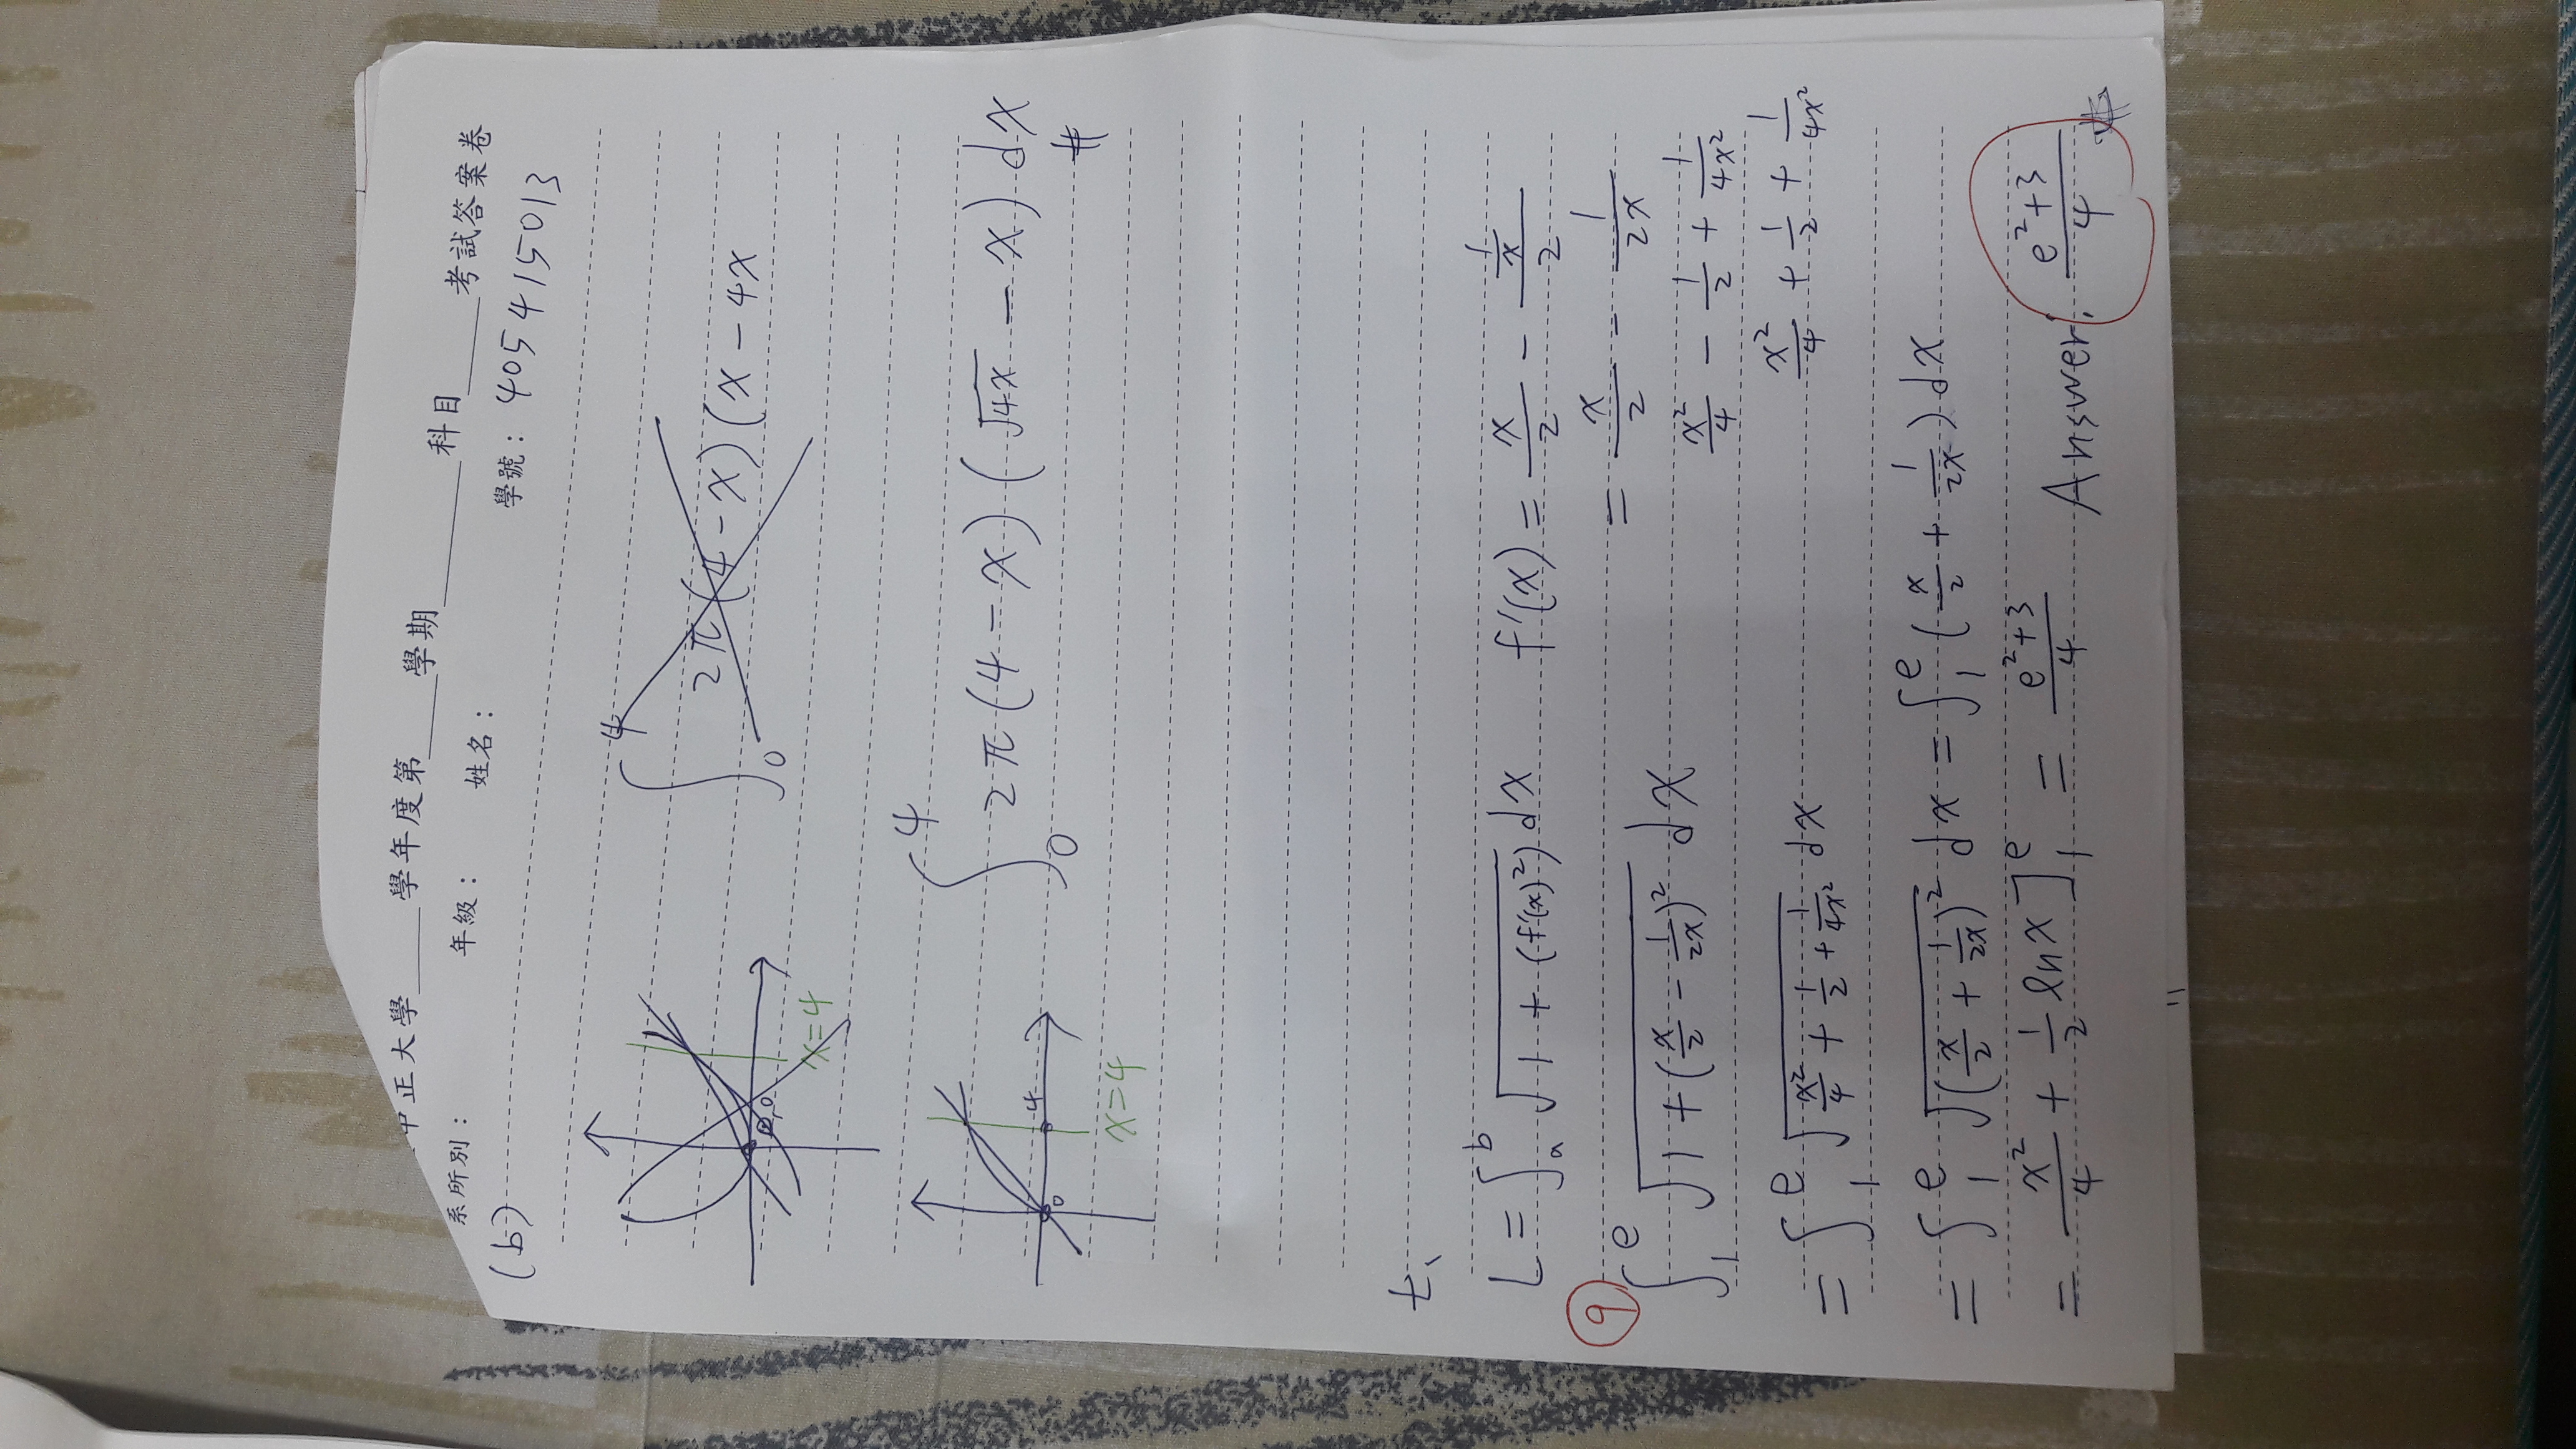 中正大學____學年度第____學期________科目____考試答案卷
系所別： 年級： 姓名： 學號：405415013
(b)
∫₀⁴ 2π(4-x)(x-4x
x=4
∫₀⁴ 2π(4-x)(√4x - x) dx #
0 4
x=4
七、
L = ∫ₐᵇ √(1 + (f'(x)²)) dx f'(x) = x/2 - (1/x)/2
9
= x/2 - 1/2x
∫₁ᵉ √(1+(x/2 - 1/2x)²) dx
x²/4 - 1/2 + 1/4x²
= ∫₁ᵉ √(x²/4 + 1/2 + 1/4x²) dx x²/4 + 1/2 + 1/4x²
= ∫₁ᵉ √((x/2 + 1/2x)²) dx = ∫₁ᵉ (x/2 + 1/2x) dx
= x²/4 + 1/2 ln x ]₁ᵉ = (e²+3)/4 Answer: (e²+3)/4 #